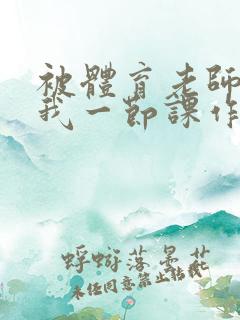 被體育老師
我一節課作
蜉蝣落曇花
未任同意禁止轉載